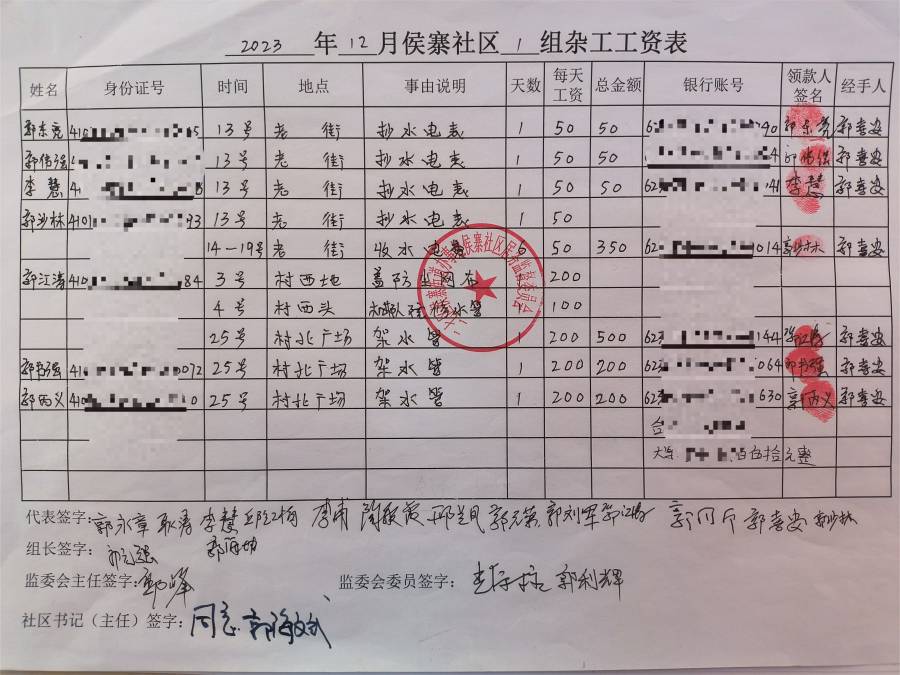 2023 年 12 月侯寨社区 1 组杂工工资表
姓名 身份证号 时间 地点 事由说明 天数 每天工资 总金额 银行账号 领款人签名 经手人
郭东亮 410 5 13号 老 街 抄水电表 1 50 50 62 90 郭东亮 郭喜安
郭伟强 4 13号 老 街 抄水电表 1 50 50 4 郭伟强 郭喜安
李慧 41 8 13号 老 街 抄水电表 1 50 50 623 41 李慧 郭喜安
郭沙林 4101 93 13号 老 街 抄水电表 1 50
14-19号 老 街 收水电费 6 50 350 62 014 郭沙林 郭喜安
郭江涛 410 84 3号 村西地 盖防尘网布 200
4号 村西头 修水管 100
25号 村北广场 架水管 1 200 500 623 144 郭江涛 郭喜安
郭书强 41 0072 25号 村北广场 架水管 1 200 200 623 064 郭书强 郭喜安
郭丙义 410 0 25号 村北广场 架水管 1 200 200 623 630 郭丙义 郭喜安
合
大写 佰伍拾元整
代表签字: 郭永章 耿涛 李慧 郭喜安 郭沙林
组长签字:
监委会主任签字: 郭峰 监委会委员签字: 郭利辉
社区书记（主任）签字: 同意 郭海斌